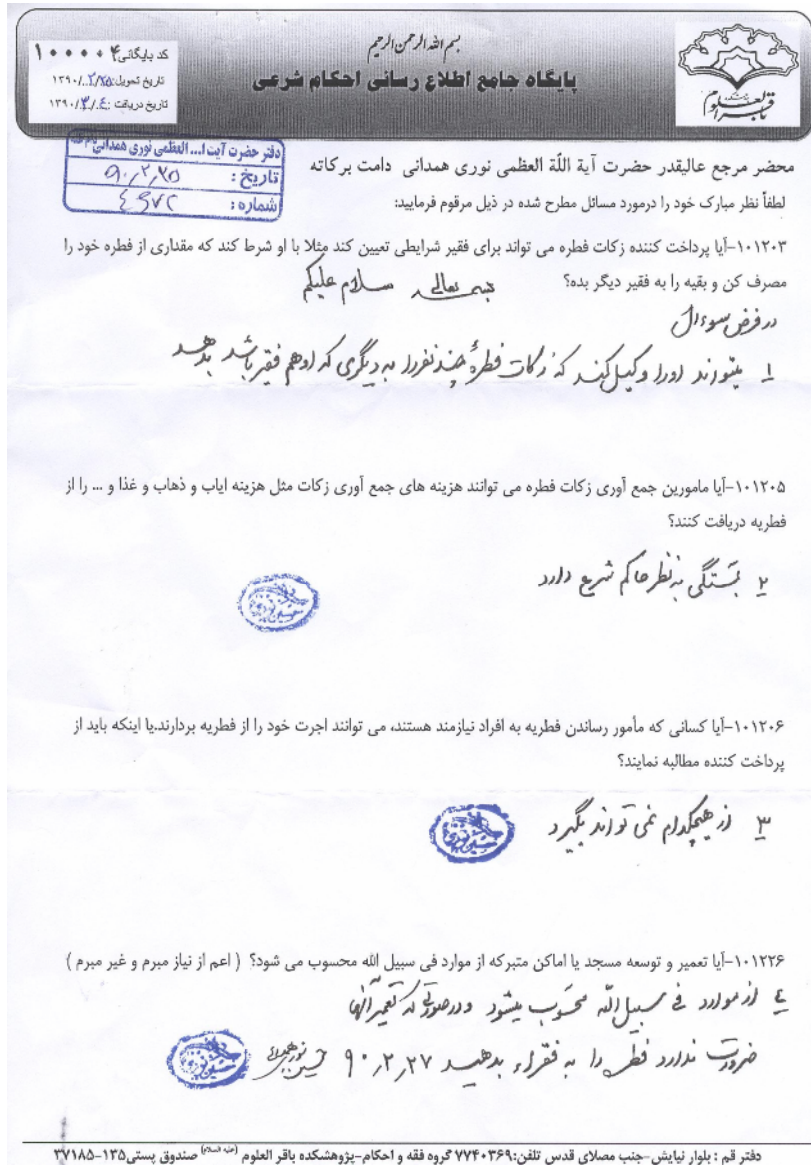 بسم الله الرحمن الرحیم
پایگاه جامع اطلاع رسانی احکام شرعی
کد بایگانی: ۱۰۰۰۰۴
تاریخ تحویل: ۱۳۹۰/۲/۲۵
تاریخ دریافت: ۱۳۹۰/۳/۴
دفتر حضرت آیت ا... العظمی نوری همدانی
تاریخ: ۹۰,۲,۲۵
شماره: ۴۶۷۲
محضر مرجع عالیقدر حضرت آیة اللّة العظمی نوری همدانی دامت برکاته
لطفاً نظر مبارک خود را درمورد مسائل مطرح شده در ذیل مرقوم فرمایید:
۱۰۱۲۰۳-آیا پرداخت کننده زکات فطره می تواند برای فقیر شرایطی تعیین کند مثلا با او شرط کند که مقداری از فطره خود را
مصرف کن و بقیه را به فقیر دیگر بده؟
بسمه تعالی سلام علیکم
در فرض سوءال
۱ میتواند اورا وکیل کند که زکات فطرهٔ چند نفر را به دیگری که او هم فقیر باشد بدهد
۱۰۱۲۰۵-آیا مامورین جمع آوری زکات فطره می توانند هزینه های جمع آوری زکات مثل هزینه ایاب و ذهاب و غذا و ... را از
فطریه دریافت کنند؟
۲ بستگی به نظر حاکم شرع دارد
۱۰۱۲۰۶-آیا کسانی که مأمور رساندن فطریه به افراد نیازمند هستند، می توانند اجرت خود را از فطریه بردارند.یا اینکه باید از
پرداخت کننده مطالبه نمایند؟
۳ از هیچکدام نمی تواند بگیرد
۱۰۱۲۲۶-آیا تعمیر و توسعه مسجد یا اماکن متبرکه از موارد فی سبیل الله محسوب می شود؟ ( اعم از نیاز مبرم و غیر مبرم )
۴ از موارد فی سبیل الله محسوب میشود و در صورتی که تعمیر آنها
ضرورت ندارد فطره را به فقراء بدهید ۹۰,۲,۲۷ حسین نوری همدانی
دفتر قم : بلوار نیایش-جنب مصلای قدس تلفن:۷۷۴۰۳۶۹ گروه فقه و احکام-پژوهشکده باقر العلوم (علیه السلام) صندوق پستی۱۳۵-۳۷۱۸۵